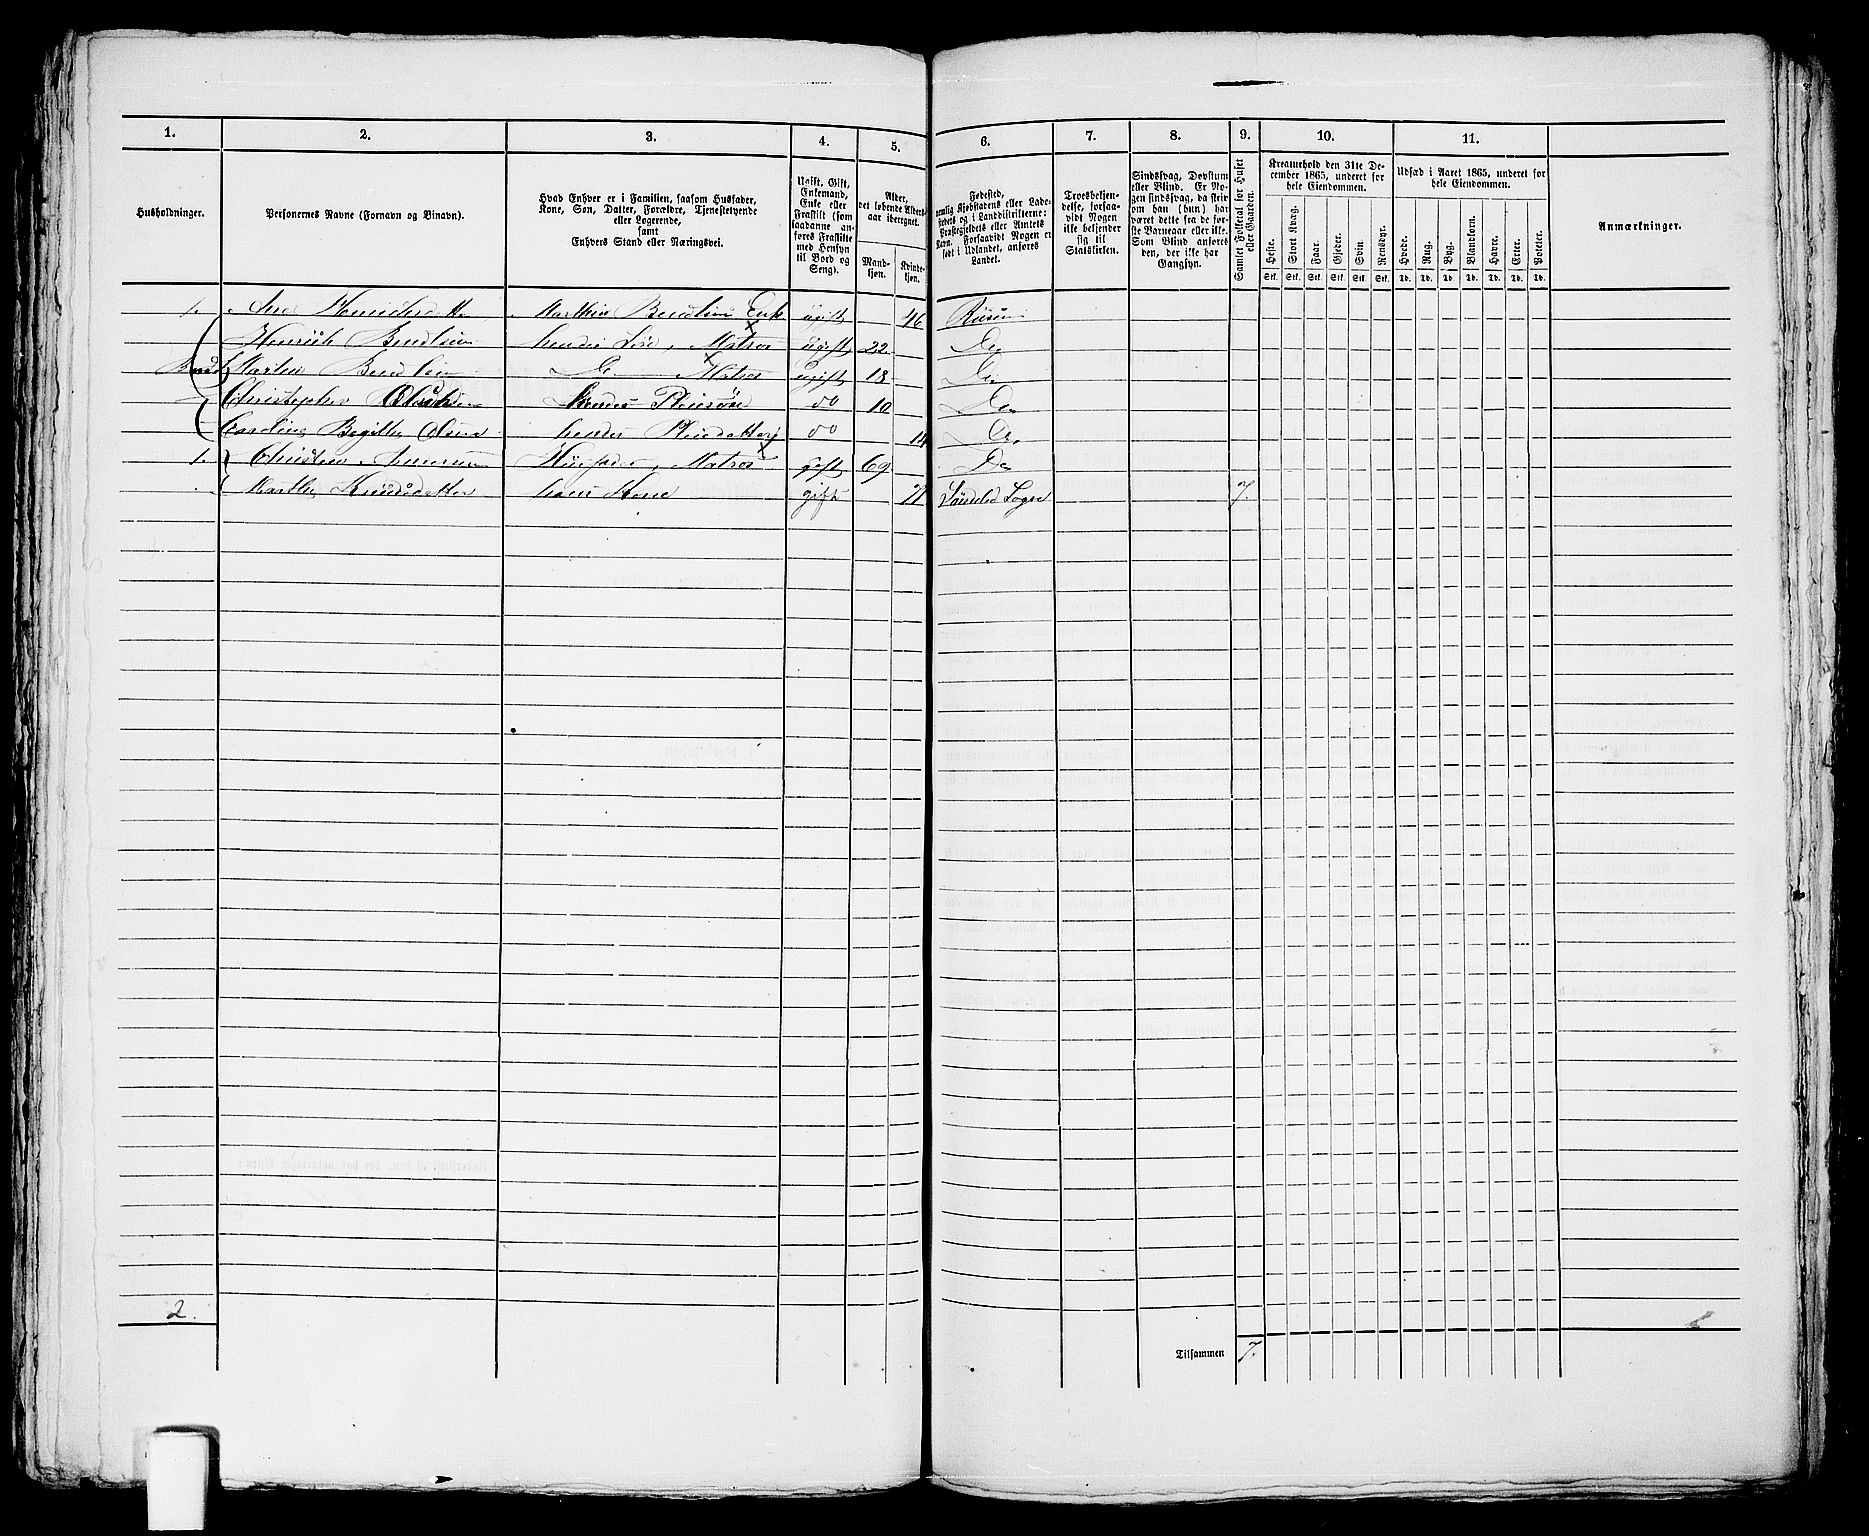 1. 2. 3. 4. 5. 6. 7. 8. 9. 10. 11.
Husholdninger.
Personernes Navne (Fornavn og Binavn).
Hvad Enhver er i Familien, saasom Husfader,
Kone, Søn, Datter, Forældre, Tjenestetyende
eller Logerende,
samt
Enhvers Stand eller Næringsvei.
Ugift, Gift,
Enkemand,
Enke eller
Fraskilt (som
saadanne an-
føres Fraskilte
med Hensyn
til Bord og
Seng).
Alder,
det løbende Alders-
aar iberegnet.
Mand-
kjøn.
Kvinde-
kjøn.
Fødested,
nemlig Kjøbstadens eller Lade-
stedets og i Landdistrikterne:
Præstegjeldets eller Amtets
Navn. Forsaavidt Nogen er
født i Udlandet, anføres
Landet.
Troesbekjen-
delse, forsaa-
vidt Nogen
ikke bekjender
sig til
Statskirken.
Sindssvag, Døvstum
eller Blind. Er No-
gen sindssvag, da skriv
om han (hun) har
været dette fra de før-
ste Barneaar eller ikke.
Som Blind anføres
den, der ikke har
Gangsyn.
Samlet Folketal for Huset
eller Gaarden.
Kreaturhold den 31te De-
cember 1865, underet for
hele Eiendommen.
Heste. Stort Kvæg. Faar. Gjeder. Svin. Rensdyr.
Stk. Stk. Stk. Stk. Stk. Stk.
Udsæd i Aaret 1865, underet for
hele Eiendommen.
Hvede. Rug. Byg. Blandkorn. Havre. Erter. Poteter.
Td. Td. Td. Td. Td. Td. Td.
Anmærkninger.
1. Enke ugift 46
Henrik hendes Matros ugift 22 Do
Do Matros ugift 18 Do
Christopher hendes Pleiesøn do 10 Do
Olsen hendes Pleiedatter do 14 Do
1. Christen Matros gift 69 Do
Knudsdatter hans Kone gift 71 Søndeled Sogn 7.
2.
Tilsammen 7.